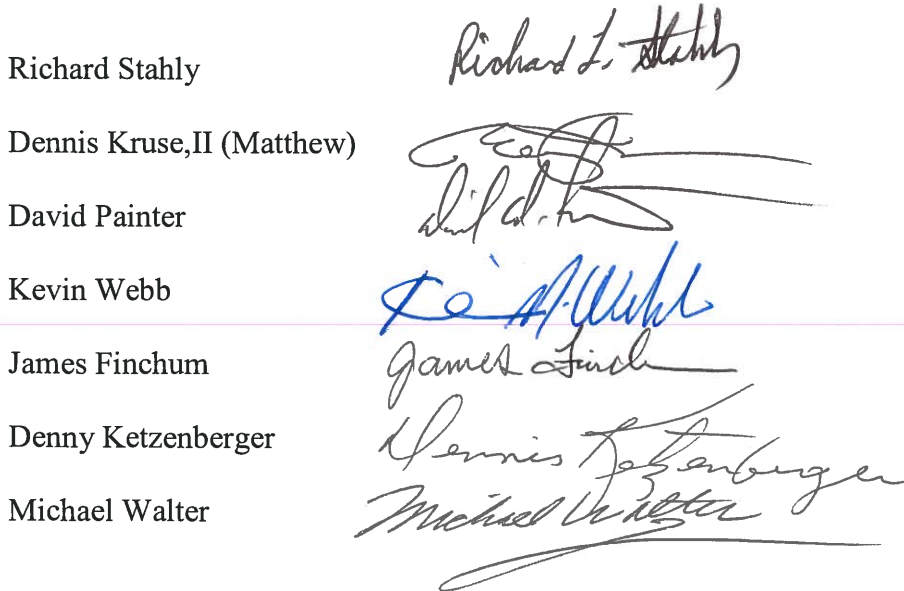 Richard Stahly Richard L. Stahly
Dennis Kruse,II (Matthew)
David Painter
Kevin Webb Webb
James Finchum James
Denny Ketzenberger Dennis Ketzenberger
Michael Walter Michael Walter